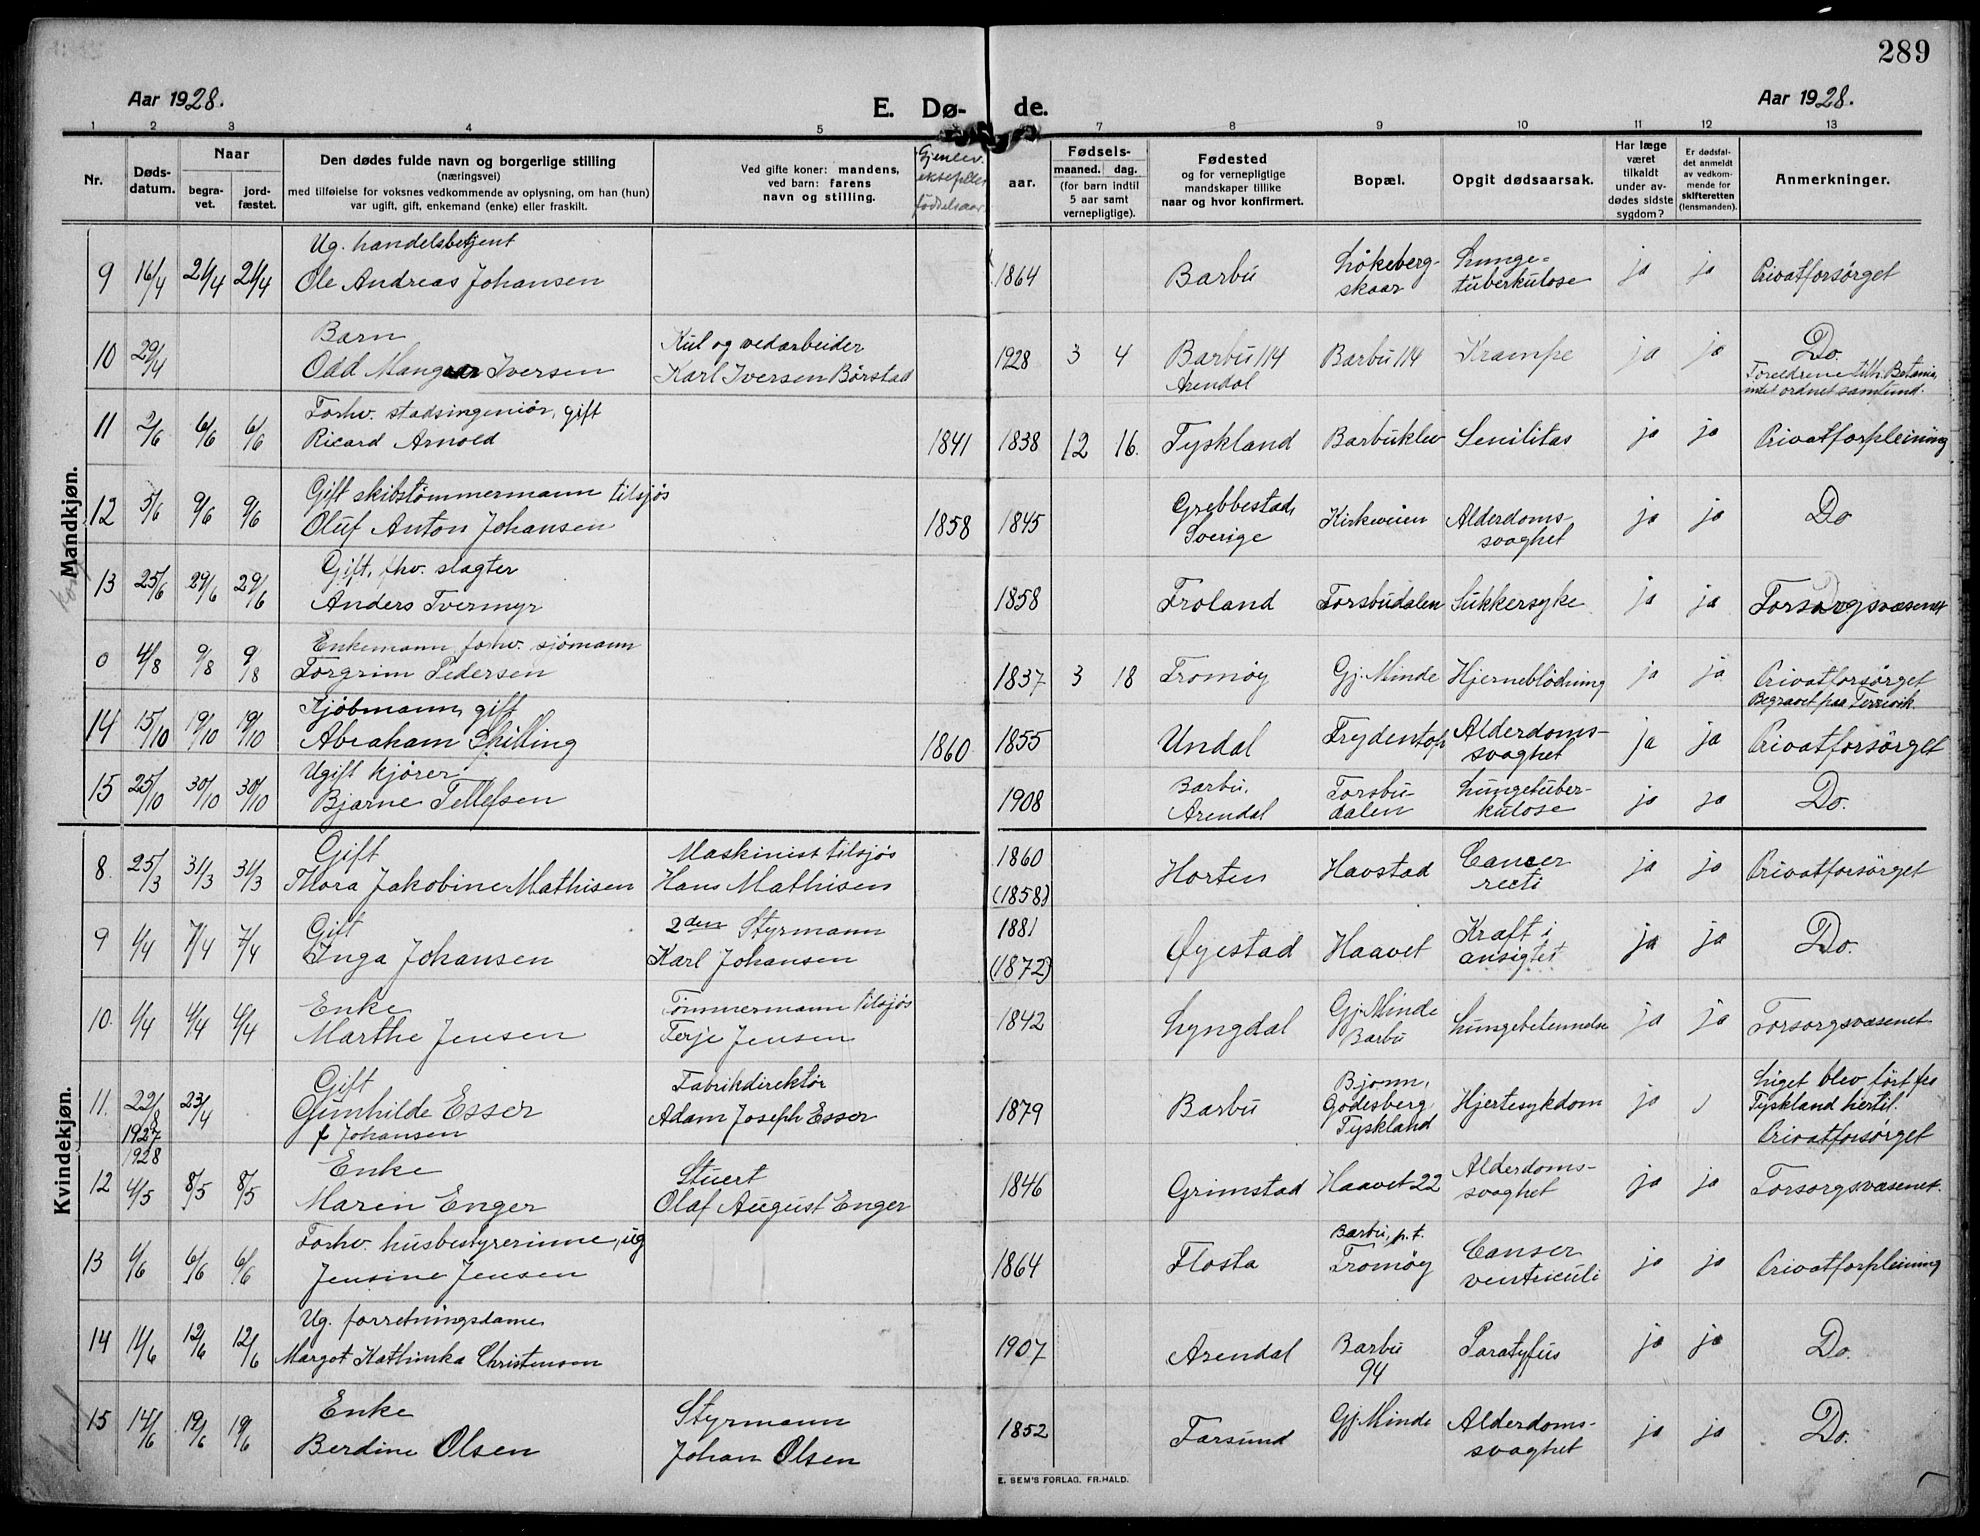 289
Aar 1928.
E. Dø- de.
Aar 1928.
1 2 3 4 5 7 8 9 10 11 12 13
Nr.
Døds-
datum.
Naar
begra-
vet.
jord-
fæstet.
Den dødes fulde navn og borgerlige stilling
(næringsvei)
med tilføielse for voksnes vedkommende av oplysning, om han (hun)
var ugift, gift, enkemand (enke) eller fraskilt.
Ved gifte koner: mandens,
ved barn: farens
navn og stilling.
Gjenlev.
ektefelles
fødselsaar
Fødsels-
aar.
maaned.
dag.
(for barn indtil
5 aar samt
vernepligtige).
Fødested
og for vernepligtige
mandskaper tillike
naar og hvor konfirmert.
Bopæl.
Opgit dødsaarsak.
Har læge
været
tilkaldt
under av-
dødes sidste
sygdom?
Er dødsfal-
det anmeldt
av vedkom-
mende for
skifteretten
(lensmanden).
Anmerkninger.
Mandkjøn.
9 16/4 21/4 21/4 Ug. handelsbetjent
Ole Andreas Johansen
1864 Barbu Løkeberg-
skaar
Lunge-
tuberkulose
ja ja Privatforsørget
10 29/4 Barn
Odd Mangnar Iversen
Kul og vedarbeider
Karl Iversen Børstad
1928 3 4 Barbu 114
Arendal
Barbu 114 Krampe ja ja Do.
Foreldrene tilh. Betania,
intet ordnet samfund.
11 2/6 6/6 6/6 Forhv. stadsingeniør, gift
Ricard Arnold
1841 1838 12 16. Tyskland Barbuklev Senilitas ja ja Privatforpleining
12 5/6 9/6 9/6 Gift skibstømmermann tilsjøs
Oluf Anton Johansen
1858 1845 Grebbestad,
Sverige
Kirkeveien Alderdoms-
svaghet
ja ja Do
13 25/6 29/6 29/6 Gift, fhv. slagter
Anders Tvermyr
1858 Froland Torsbudalen Sukkersyke ja ja Forsorgsvæsenet
0 4/8 9/8 9/8 Enkemann, forhv. sjømann
Torgrim Pedersen
1837 3 18 Tromøy Gj. Minde Hjerneblødning ja ja Privatforsørget
Begravet paa Tervik.
14 15/10 19/10 19/10 Kjøbmann, gift
Abraham Skilling
1860 1855 Undal Frydentop Alderdoms-
svaghet
ja ja Privatforsørget
15 25/10 30/10 30/10 Ugift kjører
Bjarne Tellefsen
1908 Barbu,
Arendal
Torsbu-
dalen
Lungetuber-
kulose
ja ja Do.
Kvindekjøn.
8. 25/3 31/3 31/3 Gift
Thora Jakobine Mathisen
Maskinist tilsjøs
Hans Mathisen
1860
(1858)
Horten Havstad Cancer
recti
ja ja Privatforsørget
9 1/4 7/4 7/4 Gift
Inga Johansen
2den Styrmann
Karl Johansen
1881
(1872)
Øyestad Haavet Kræft i
ansigtet
ja ja Do.
10. 1/4 4/4 4/4 Enke
Marthe Jensen
Tømmermann tilsjøs
Terje Jensen
1842 Lyngdal Gj. Minde
Barbu
Lungebetennelse ja ja Forsorgsvæsenet
11. 22/8
1927
23/4
Gift
Gunhilde Esser
f Johansen
Fabrikdirektør
Adam Joseph Esser
1879 Barbu Bjonn,
Godesberg
Tyskland
Hjertesykdom ja Liget blev ført fra
Tyskland hertil.
Privatforsørget
1928
12 4/5 8/5 8/5 Enke
Maren Enger
Stuert
Olaf August Enger
1846 Grimstad Haavet 22 Alderdoms-
svaghet
ja ja Forsorgsvæsenet.
13 1/6 6/6 6/6 Forhv. husbestyrerinne, ug
Jensine Jensen
1864 Flosta Barbu, p.t.
Tromøy
Canser
ventriculi
ja ja Privatforpleining
14 11/6 12/6 12/6 Ug. forretningsdame
Margot Kathinka Christensen
1907 Arendal Barbu
94
Paratyfus ja ja Do.
15 14/6 19/6 19/6 Enke
Berdine Olsen
Styrmann
Johan Olsen
1852 Farsund Gj. Minde Alderdoms-
svaghet
ja ja Do.
E. SEM'S FORLAG. FR.HALD.